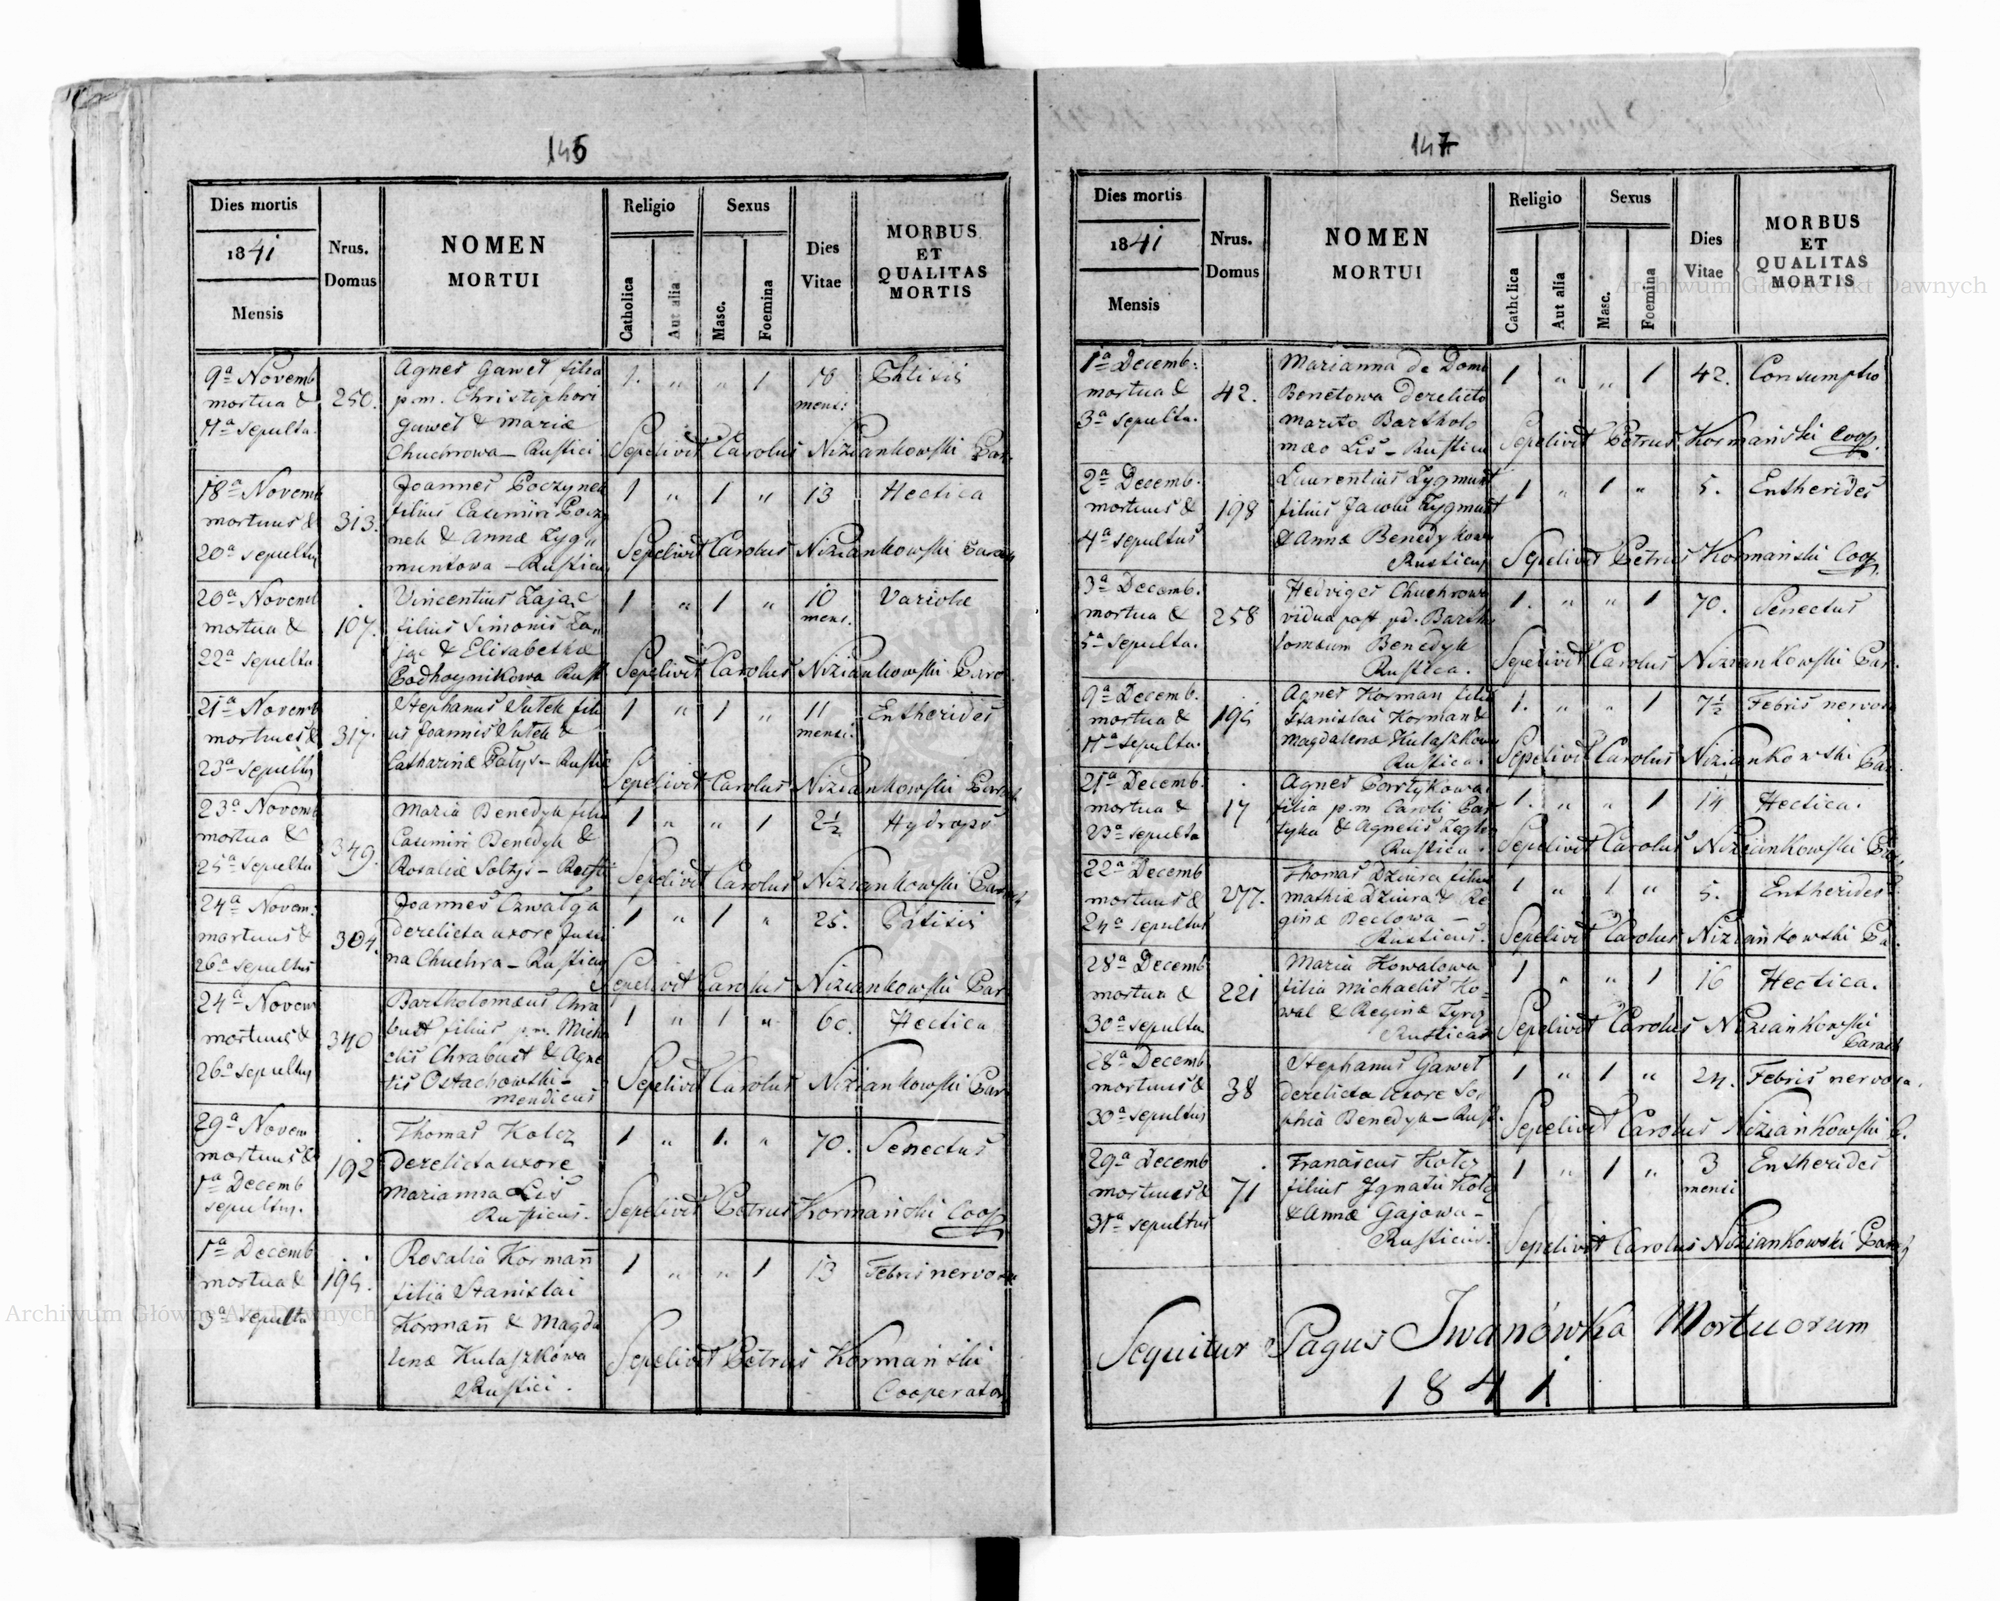 146
Dies mortis
1841
Mensis
Nrus. Domus
NOMEN MORTUI
Religio
Catholica
Aut alia
Sexus
Masc.
Foemina
Dies Vitae
MORBUS ET QUALITAS MORTIS
9a Novemb mortua & 11a sepulta
250.
Agnes Gaweł filia
p.m. Christophori
Gaweł & Mariæ
Chuchrowa – Rustici
1. " " 1
18 mens:
Phtisis
Sepelivit Carolus Niziankowski Par.
18a Novemb mortuus & 20a sepultus
313.
Joannes Poczynek
filius Casimiri Poczy
nek & Annæ Zyg
muntowa – Rusticus
1 " 1 "
13
Hectica
Sepelivit Carolus Niziankowski Paroch
20a Novemb mortua & 22a sepulta
107.
Vincentius Zając
filius Simonis Za
jąc & Elisabethæ
Podhoynikowa Rust
1 " 1 "
10 mens.
Variolæ
Sepelivit Carolus Niziankowski Paro
21a Novemb mortuus & 23a sepultus
317.
Stephanus Sutek fili
us Joannis Sutek &
Catharinæ Pałys – Rustic
1 " 1 "
11 mensi:
Entherides
Sepelivit Carolus Niziankowski Paroch
23a Novemb mortua & 25a sepulta
349.
Maria Benedyk filia
Casimiri Benedyk &
Rosaliæ Sołtys – Rusti
1 " " 1
2½
Hydrops
Sepelivit Carolus Niziankowski Paroch
24a Novem: mortuus & 26a sepultus
304.
Joannes Czwałga
derelicta uxore Justi
na Chuchra – Rusticus
1 " 1 "
25.
Phtisis
Sepelivit Carolus Niziankowski Par.
24a Novem mortuus & 26a sepultus
340
Bartholomæus Chra
bust filius p.m. Micha
elis Chrabust & Agne
tis Ostachowski –
mendicus
1 " 1 "
60.
Hectica
Sepelivit Carolus Niziankowski Par
29a Novem mortuus & 1a Decemb sepultus.
192
Thomas Kołcz
derelicta uxore
Marianna Lis
Rusticus.
1 " 1. "
70.
Senectus
Sepelivit Petrus Kormański Coop
1a Decemb mortua & 3a sepulta
195.
Rosalia Kormañ
filia Stanislai
Kormañ & Magda
lenæ Kułaszkówa
Rustici.
1 " " 1
13
Febris nervosa
Sepelivit Petrus Kormański
Cooperator
147
Dies mortis
1841
Mensis
Nrus. Domus
NOMEN MORTUI
Religio
Catholica
Aut alia
Sexus
Masc.
Foemina
Dies Vitae
MORBUS ET QUALITAS MORTIS
1a Decemb: mortua & 3a sepulta.
42.
Marianna de Domo
Benetowa derelicto
marito Bartholo
mæo Lis – Rustica
1 " " 1
42.
Consumptio
Sepelivit Petrus Kormański Coop.
2a Decemb. mortuus & 4a sepultus
198
Laurentius Zygmunt
filius Jacobi Zygmunt
& Annæ Benedykowa
Rusticus
1 " 1 "
5.
Entherides
Sepelivit Petrus Kormański Coop.
3a Decemb. mortua & 5a sepulta.
258
Hedviges Chuchrowa
vidua post pd. Bartho
lomæum Benedyk
Rustica.
1. " " 1
70.
Senectus
Sepelivit Carolus Niziankowski Par.
9a Decemb. mortua & 11a sepulta.
195
Agnes Korman filia
Stanislai Korman &
Magdalenæ Kułaszkowa
Rustica.
1. " " 1
7½
Febris nervosa
Sepelivit Carolus Niziankowski Par.
21a Decemb. mortua & 23a sepulta
17
Agnes Partykowa
filia p.m Caroli Par
tyka & Agnetis
Rustica.
1. " " 1
14
Hectica.
Sepelivit Carolus Niziankowski Par
22a Decemb mortuus & 24a sepultus
277.
Thomas Dziura filius
Mathiæ Dziura & Re
ginæ Beclowa –
Rusticus.
1 " 1 "
5.
Entherides
Sepelivit Carolus Niziankowski Pa.
28a Decemb mortua & 30a sepulta
221
Maria Kowalowa
filia Michaelis Ko
wal & Reginæ
Rustica
1 " " 1
16
Hectica.
Sepelivit Carolus Niziankowski
Paroch
28a Decemb mortuus & 30a sepultus
38
Stephanus Gaweł
derelicta uxore So
phia Benedyk – Rust.
1 " 1 "
24.
Febris nervosa.
Sepelivit Carolus Niziankowski P.
29a Decemb mortuus & 31a sepultus
71
Franciscus Kołcz
filius Ignatii Kołcz
& Annæ Gajowa –
Rusticus.
1 " 1 "
3 mensi
Entherides
Sepelivit Carolus Niziankowski Paroch
Sequitur Pagus Iwanówka Mortuorum
1841
Archiwum Główne Akt Dawnych
Archiwum Główne Akt Dawnych